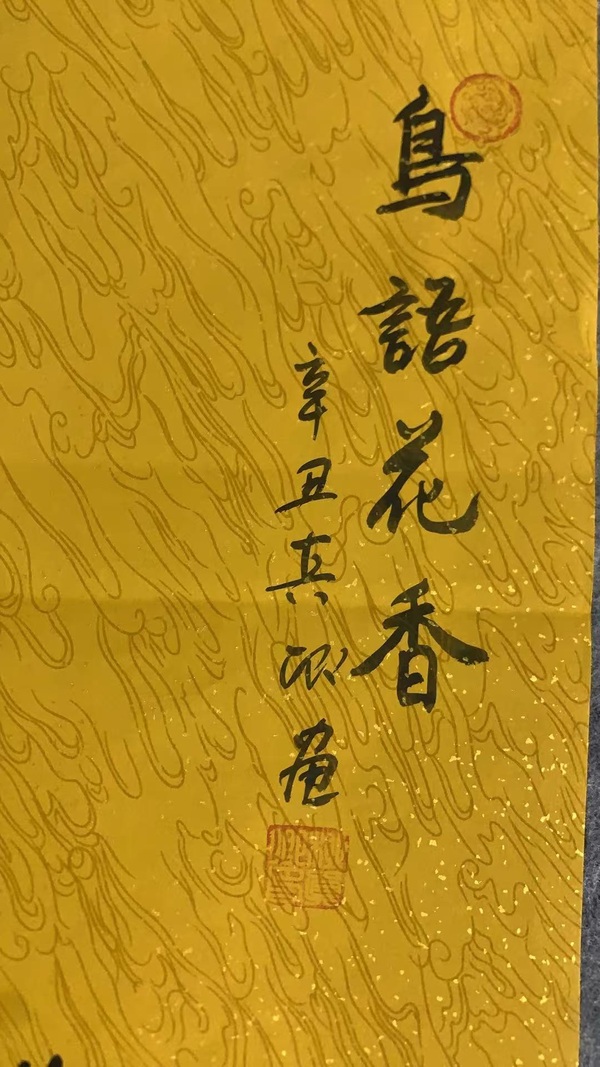 鳥語花香
辛丑真畫